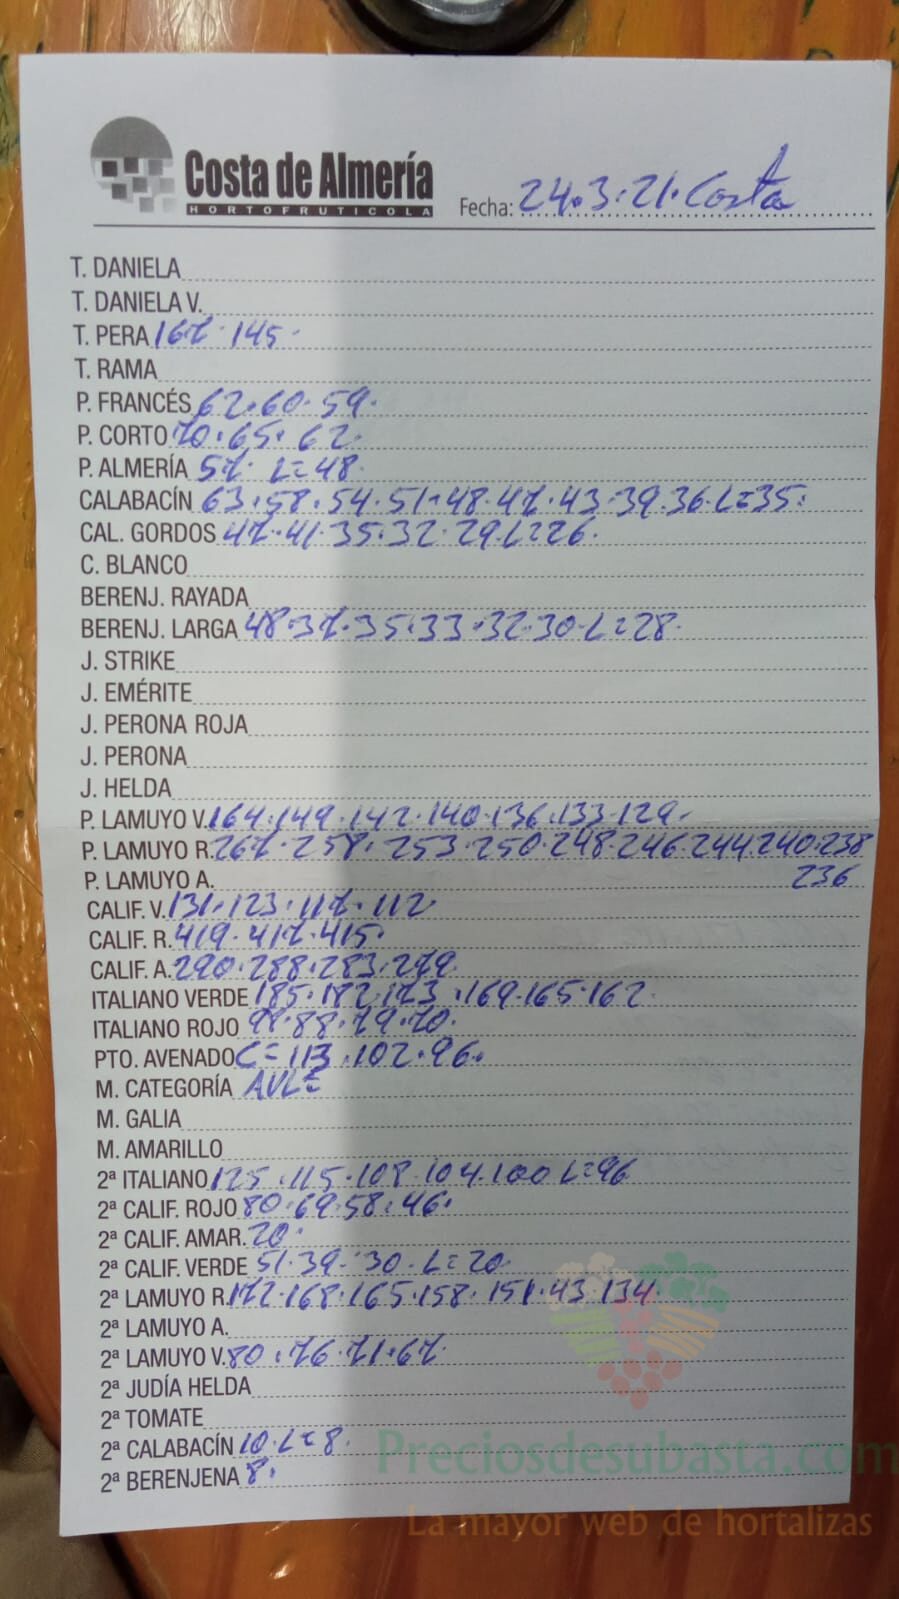 Costa de Almería
HORTOFRUTICOLA
Fecha: 24.3.21. Costa
T. DANIELA
T. DANIELA V.
T. PERA 167 145
T. RAMA
P. FRANCÉS 62.60.59.
P. CORTO 70.65.62.
P. ALMERÍA 57 L=48.
CALABACÍN 63.58.54.51-48.47.43-39.36.L=35.
CAL. GORDOS 47.41.35.32.29.L=26.
C. BLANCO
BERENJ. RAYADA
BERENJ. LARGA 48.37.35.33.32.30.L=28.
J. STRIKE
J. EMÉRITE
J. PERONA ROJA
J. PERONA
J. HELDA
P. LAMUYO V. 164.149.142.140.136.133.129.
P. LAMUYO R. 267.258.253.250.248.246.244.240.238
P. LAMUYO A. 236
CALIF. V. 131.123.117.112.
CALIF. R. 419.417.415.
CALIF. A. 290.288.283.279.
ITALIANO VERDE 185.182.173.169.165.162.
ITALIANO ROJO 88.79.70.
PTO. AVENADO C=113.102.96.
M. CATEGORÍA
M. GALIA
M. AMARILLO
2ª ITALIANO 125.115.108.104.100 L=96
2ª CALIF. ROJO 80.69.58.46.
2ª CALIF. AMAR. 20.
2ª CALIF. VERDE 51.39.30.L=20.
2ª LAMUYO R. 172.168.165.158.151.43.134.
2ª LAMUYO A.
2ª LAMUYO V. 80.76.71.67.
2ª JUDÍA HELDA
2ª TOMATE
2ª CALABACÍN 10.L=8.
2ª BERENJENA 8.
Preciosdesubasta.com
La mayor web de hortalizas